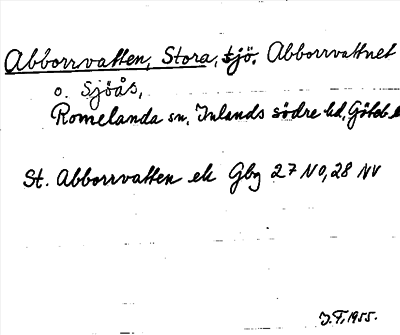 Abborrvatten, Stora, sjö. Abborrvattnet
o. Sjöås,
Romelanda sn, Inlands södre hd, Göteb.
St. Abborrvatten ek Gbg 27 NO, 28 NV
J.F. 1955.